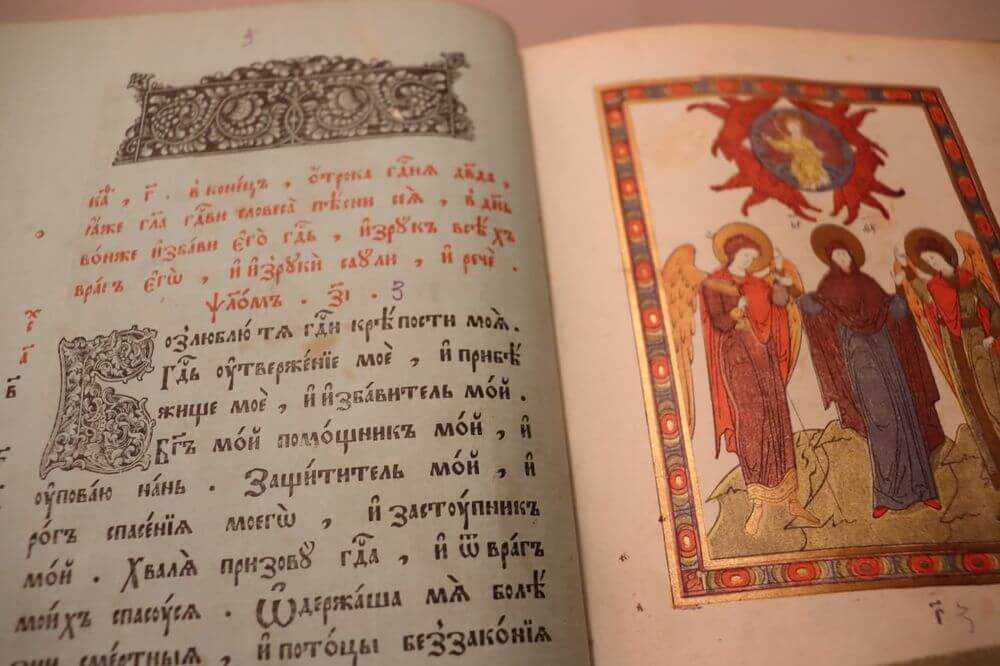 з
к҃а, г҃. в конецъ, ѻ҆́трока гдⷭ҇ня дв҃да,
ꙗ҆́же гл҃а гдⷭ҇ви словеса̀ пѣ́сни сеѧ̀, в де́нь
во́нже и҆зба́ви є҆го̀ гдⷭ҇ь, и҆з̾рꙋ́къ всѣ́хъ
вра́гъ є҆гѡ̀, и҆ и҆з̾рꙋкѝ саꙋ́ли, и҆ речѐ.
ѱало́мъ. з҃і. З
Возлюблю́ тѧ гдⷭ҇и крѣ́пости моѧ̀.
Гдⷭ҇ь ᲂу҆твержє́нїе моѐ, и҆ прибѣ́
жище моѐ, и҆ и҆зба́витель мо́й.
Бг҃ъ мо́й помо́щникъ мо́й, и҆
ᲂу҆пова́ю на́нь. Защи́титель мо́й, и҆
ро́гъ спасе́нїѧ моегѡ̀, и҆ застꙋ́пникъ
мо́й. Хвалѧ̀ призовꙋ̀ гдⷭ҇а, и҆ ѿ вра́гъ
мои́хъ спасꙋ́сѧ. Ѡ҆держа́ша мѧ̀ болѣ́
зни сме́ртныѧ, и҆ пото́цы беззако́нїѧ
г҃ З